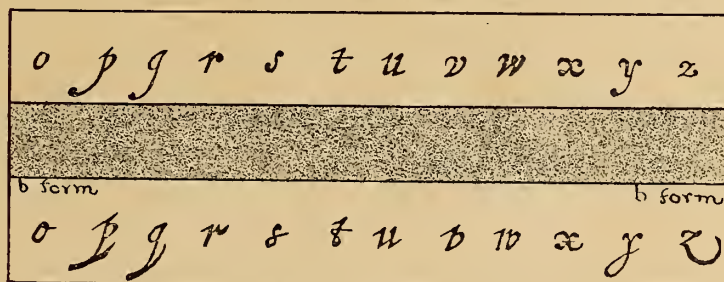 o p q r s t u v w x y z
b form b form
o p q r s t u v w x y z